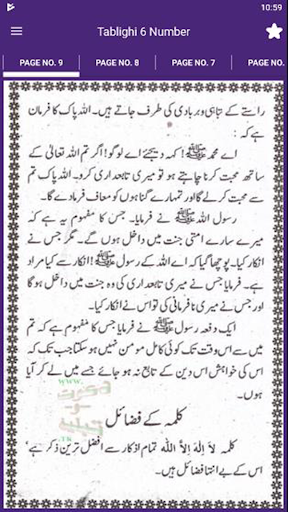 10:59
Tablighi 6 Number
PAGE NO. 9 PAGE NO. 8 PAGE NO. 7 PAGE NO.
راستے کے تباہی و بربادی کی طرف جاتے ہیں۔ اللہ پاک کا فرمان
ہے کہ :
اے محمد ﷺ! کہہ دیجئے اے لوگو! اگر تم اللہ تعالیٰ کے
ساتھ محبت کرنا چاہتے ہو تو میری تابعداری کرو۔ اللہ پاک تم
سے محبت کرلے گا اور تمہارے گناہوں کو معاف فرمادے گا۔
رسول اللہ ﷺ نے فرمایا۔ جس کا مفہوم یہ ہے کہ
میرے سارے امتی جنت میں داخل ہوں گے۔ مگر جس نے
انکار کیا۔ پوچھا گیا کہ اے اللہ کے رسول ﷺ! انکار سے کیا مراد
ہے۔ فرمایا جس نے میری تابعداری کی وہ جنت میں داخل ہوگا
اور جس نے میری نافرمانی کی تو اس نے انکار کیا۔
ایک دفعہ رسول ﷺ نے فرمایا جس کا مفہوم ہے کہ تم
میں سے اس وقت تک کوئی کامل مومن نہیں ہو سکتا جب تک کہ
اس کی خواہش اس دین کے تابع نہ ہو جائے جسے میں لے کر آیا
ہوں۔
کلمہ کے فضائل
کلمہ لَا اِلٰهَ اِلَّا اللّٰه تمام اذکار سے افضل ترین ذکر ہے ،
اس کے بے انتہا فضائل ہیں۔
www.